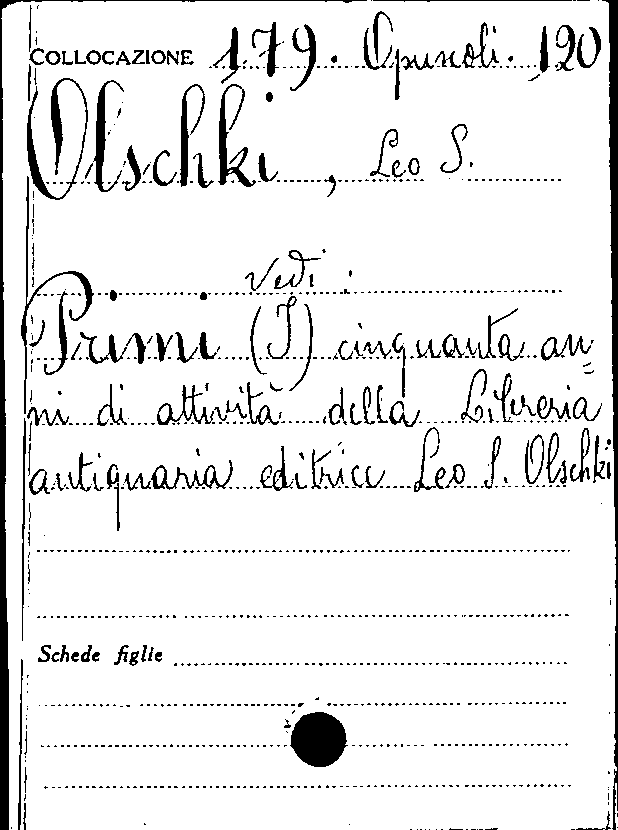 COLLOCAZIONE 179. Opuscoli. 120
Olschki, Leo S.
Vedi:
Primi (I) cinquanta an=
ni di attività della Libreria
antiquaria editrice Leo S. Olschki
Schede figlie